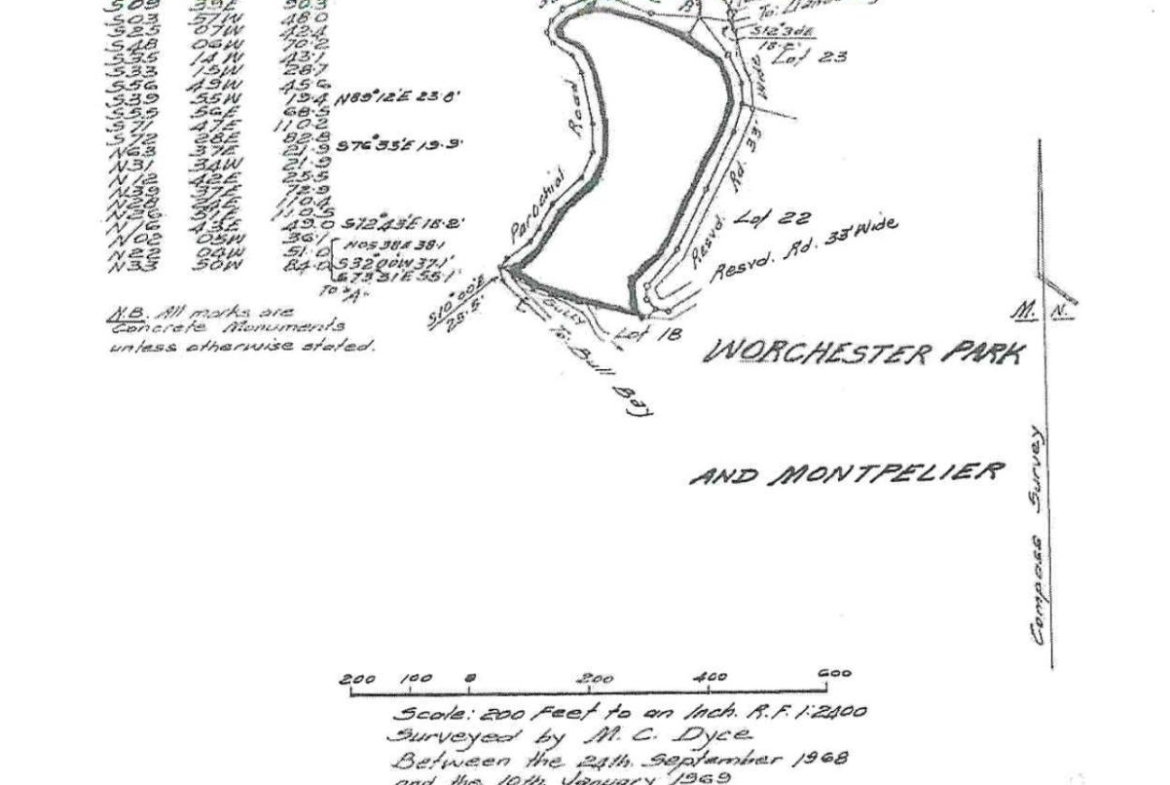 S03 51W 48.0
S25 07W 42.4
S48 06W 70.2
S35 14W 43.1
S33 15W 28.7
S56 49W 45.6
S39 55W 19.4 N89°12'E 23.8'
S55 56E 68.5
S71 47E 110.2
S72 28E 82.8
N63 37E 21.9 S76°33'E 19.9'
N31 34W 21.9
N12 42E 25.5
N39 37E 72.9
N28 24E 110.4
N26 51E 110.5
N16 43E 49.0 S72°43'E 18.2'
N02 05W 36.1
N05 38E 38.1
N22 04W 51.0
S32°00'W 37.1'
N33 50W 84.0
S73°31'E 55.1'
To "A"
N.B. All marks are
Concrete Monuments
unless otherwise stated.
S12°30'E
18.2'
Lot 23
Wide
Rd. 33'
Resvd.
Parochial Road
Lot 22
Resvd. Rd. 33' Wide
S10°00'E
25.5'
Gully
To: Bull Bay
Lot 18
M. N.
WORCHESTER PARK
AND MONTPELIER
Compass Survey
200 100 0 200 400 600
Scale: 200 Feet to an Inch. R.F. 1:2400
Surveyed by M. C. Dyce
Between the 24th. September 1968
and the 10th January 1969